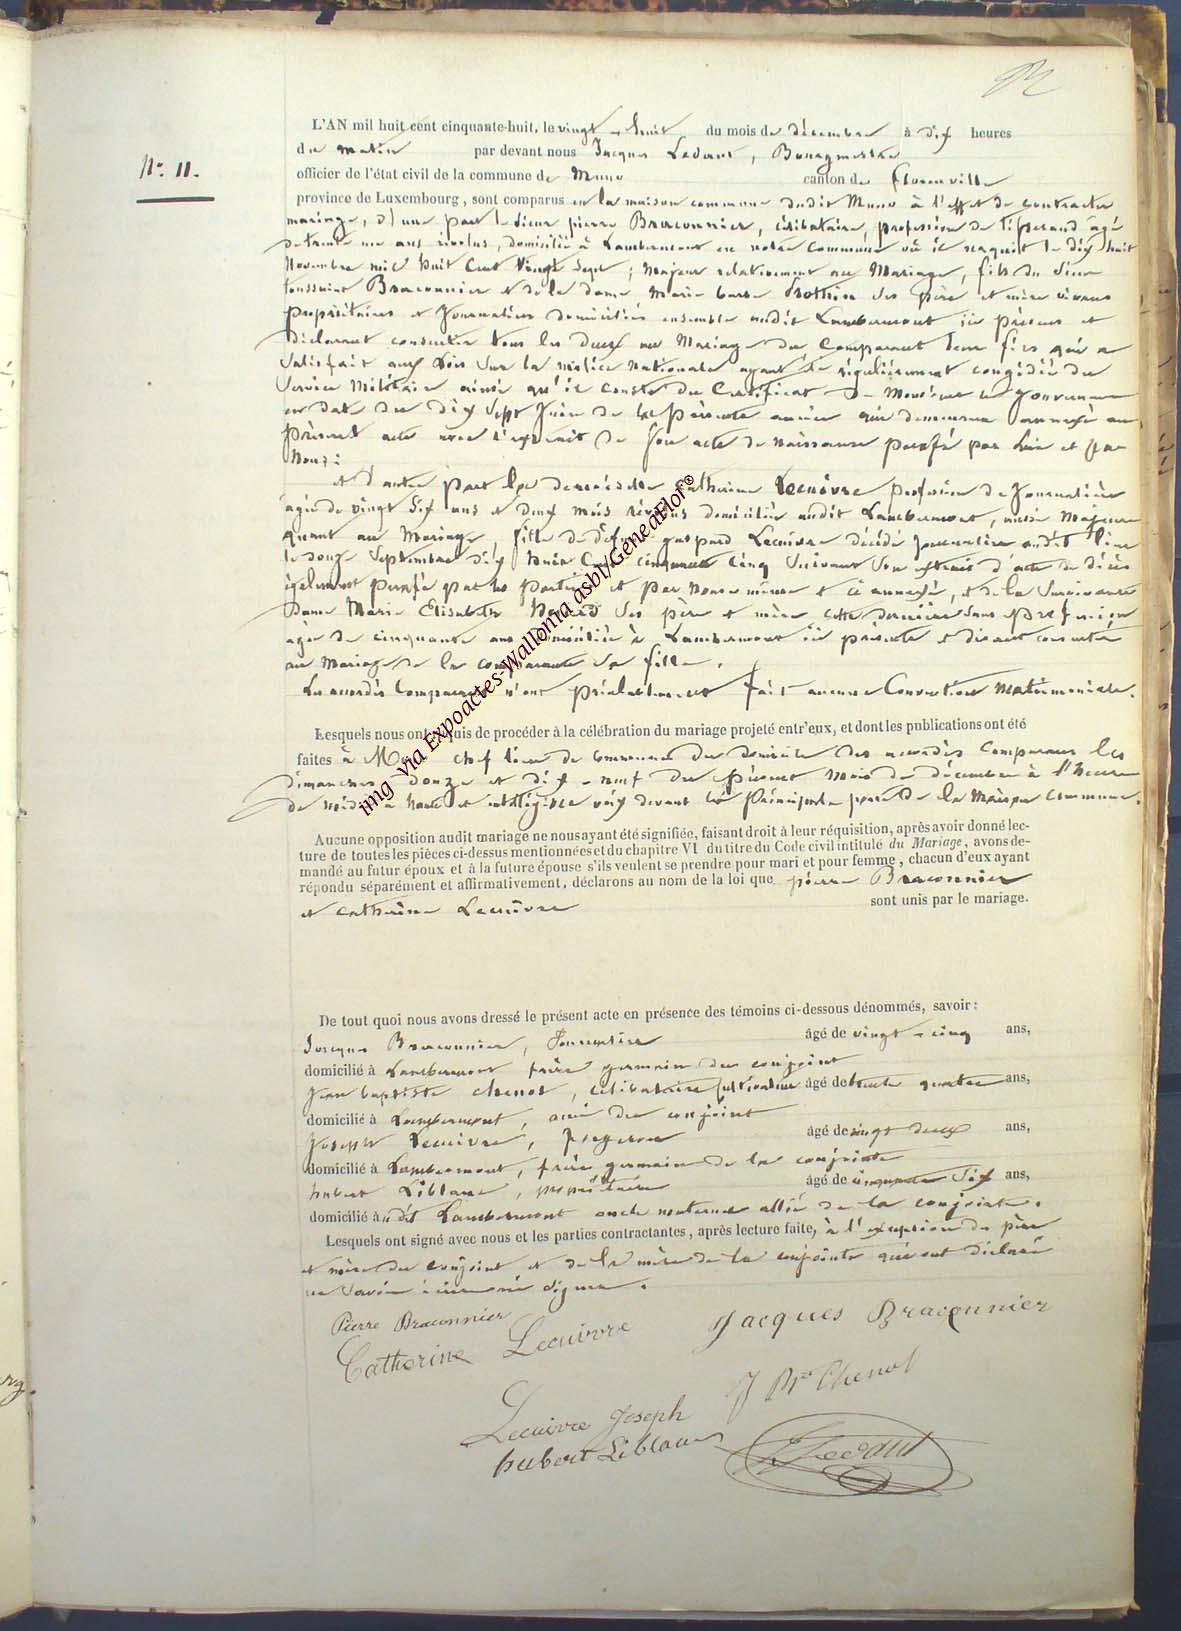 N° 11.
L'AN mil huit cent cinquante-huit, le vingt-huit du mois de décembre à dix heures
du matin par devant nous Jacques Ledant, Bourgmestre
officier de l'état civil de la commune de Muno canton de florenville
province de Luxembourg, sont comparus en la maison commune dudit Muno à l'effet de contracter
mariage, d'une part le sieur pierre Braconnier, célibataire, profession de tisserand âgé
de trente un ans révolus, domicilié à Lambermont en notre commune où il naquit le dix huit
Novembre mil huit Cent Vingt Sept ; Majeur relativement au Mariage, fils du Sieur
toussaint Braconnier et de la dame Marie barbe ses père et mère vivans
propriétaires et Journaliers domiciliés ensemble audit Lambermont ici présens et
déclarant consentir tous les deux au Mariage du Comparant leur fils qui a
Satisfait aux Lois sur la milice Nationale ayant été régulièrement congédié du
Service Militaire ainsi qu'il conste du Certificat de Monsieur le Gouverneur
en date du dix Sept Juin de la présente année qui demeurera annexé au
présent acte avec l'extrait de Son acte de naissance parafé par Lui et par
Nous :
et d'autre part la demoiselle Catherine Lecuivre profession de Journalière
âgée de vingt Six ans et deux mois révolus domiciliée audit Lambermont, aussi Majeure
quant au Mariage, fille de défunt gaspard Lecuivre décédé Journalier audit lieu
le douze Septembre dix huit Cent cinquante cinq Suivant Son extrait d'acte de décès
également parafé par les parties et par Nous même et ci annexé, et de la Survivante
Dame Marie Elisabeth ses père et mère cette dernière Sans profession
âgée de cinquante ans domiciliée à Lambermont ici présente et disant consentir
au Mariage de la comparante Sa fille.
Les accordés Comparants n'ont préalablement fait aucune Convention Matrimoniale.
Lesquels nous ont requis de procéder à la célébration du mariage projeté entr'eux, et dont les publications ont été
faites à Muno chef lieu de commune du domicile des accordés Comparans les
dimanches douze et dix-neuf du présent Mois de décembre à l'heure
de midi à haute et intelligible voix devant la principale porte de la Maison Commune.
Aucune opposition audit mariage ne nous ayant été signifiée, faisant droit à leur réquisition, après avoir donné lec-
ture de toutes les pièces ci-dessus mentionnées et du chapitre VI du titre du Code civil intitulé du Mariage, avons de-
mandé au futur époux et à la future épouse s'ils veulent se prendre pour mari et pour femme, chacun d'eux ayant
répondu séparément et affirmativement, déclarons au nom de la loi que pierre Braconnier
et Catherine Lecuivre sont unis par le mariage.
De tout quoi nous avons dressé le présent acte en présence des témoins ci-dessous dénommés, savoir :
Jacques Braconnier, Journalier âgé de vingt-cinq ans,
domicilié à Lambermont frère germain du conjoint
Jean baptiste Chenot, célibataire Cultivateur âgé de trente quatre ans,
domicilié à Lambermont, ami du conjoint
Joseph Lecuivre, forgeron âgé de vingt deux ans,
domicilié à Lambermont, frère germain de la conjointe
hubert Liblanc, propriétaire âgé de cinquante Six ans,
domicilié audit Lambermont oncle maternel allié de la conjointe.
Lesquels ont signé avec nous et les parties contractantes, après lecture faite, à l'exception du père
et mère du conjoint et de la mère de la conjointe qui ont déclaré
ne Savoir écrire ni signer.
Pierre Braconnier
Jacques Braconnier
Catherine Lecuivre
J Bte Chenot
Lecuivre Joseph
hubert Liblanc
J Ledant
img via Expoactes-Wallonia asbl/GeneaFlor®